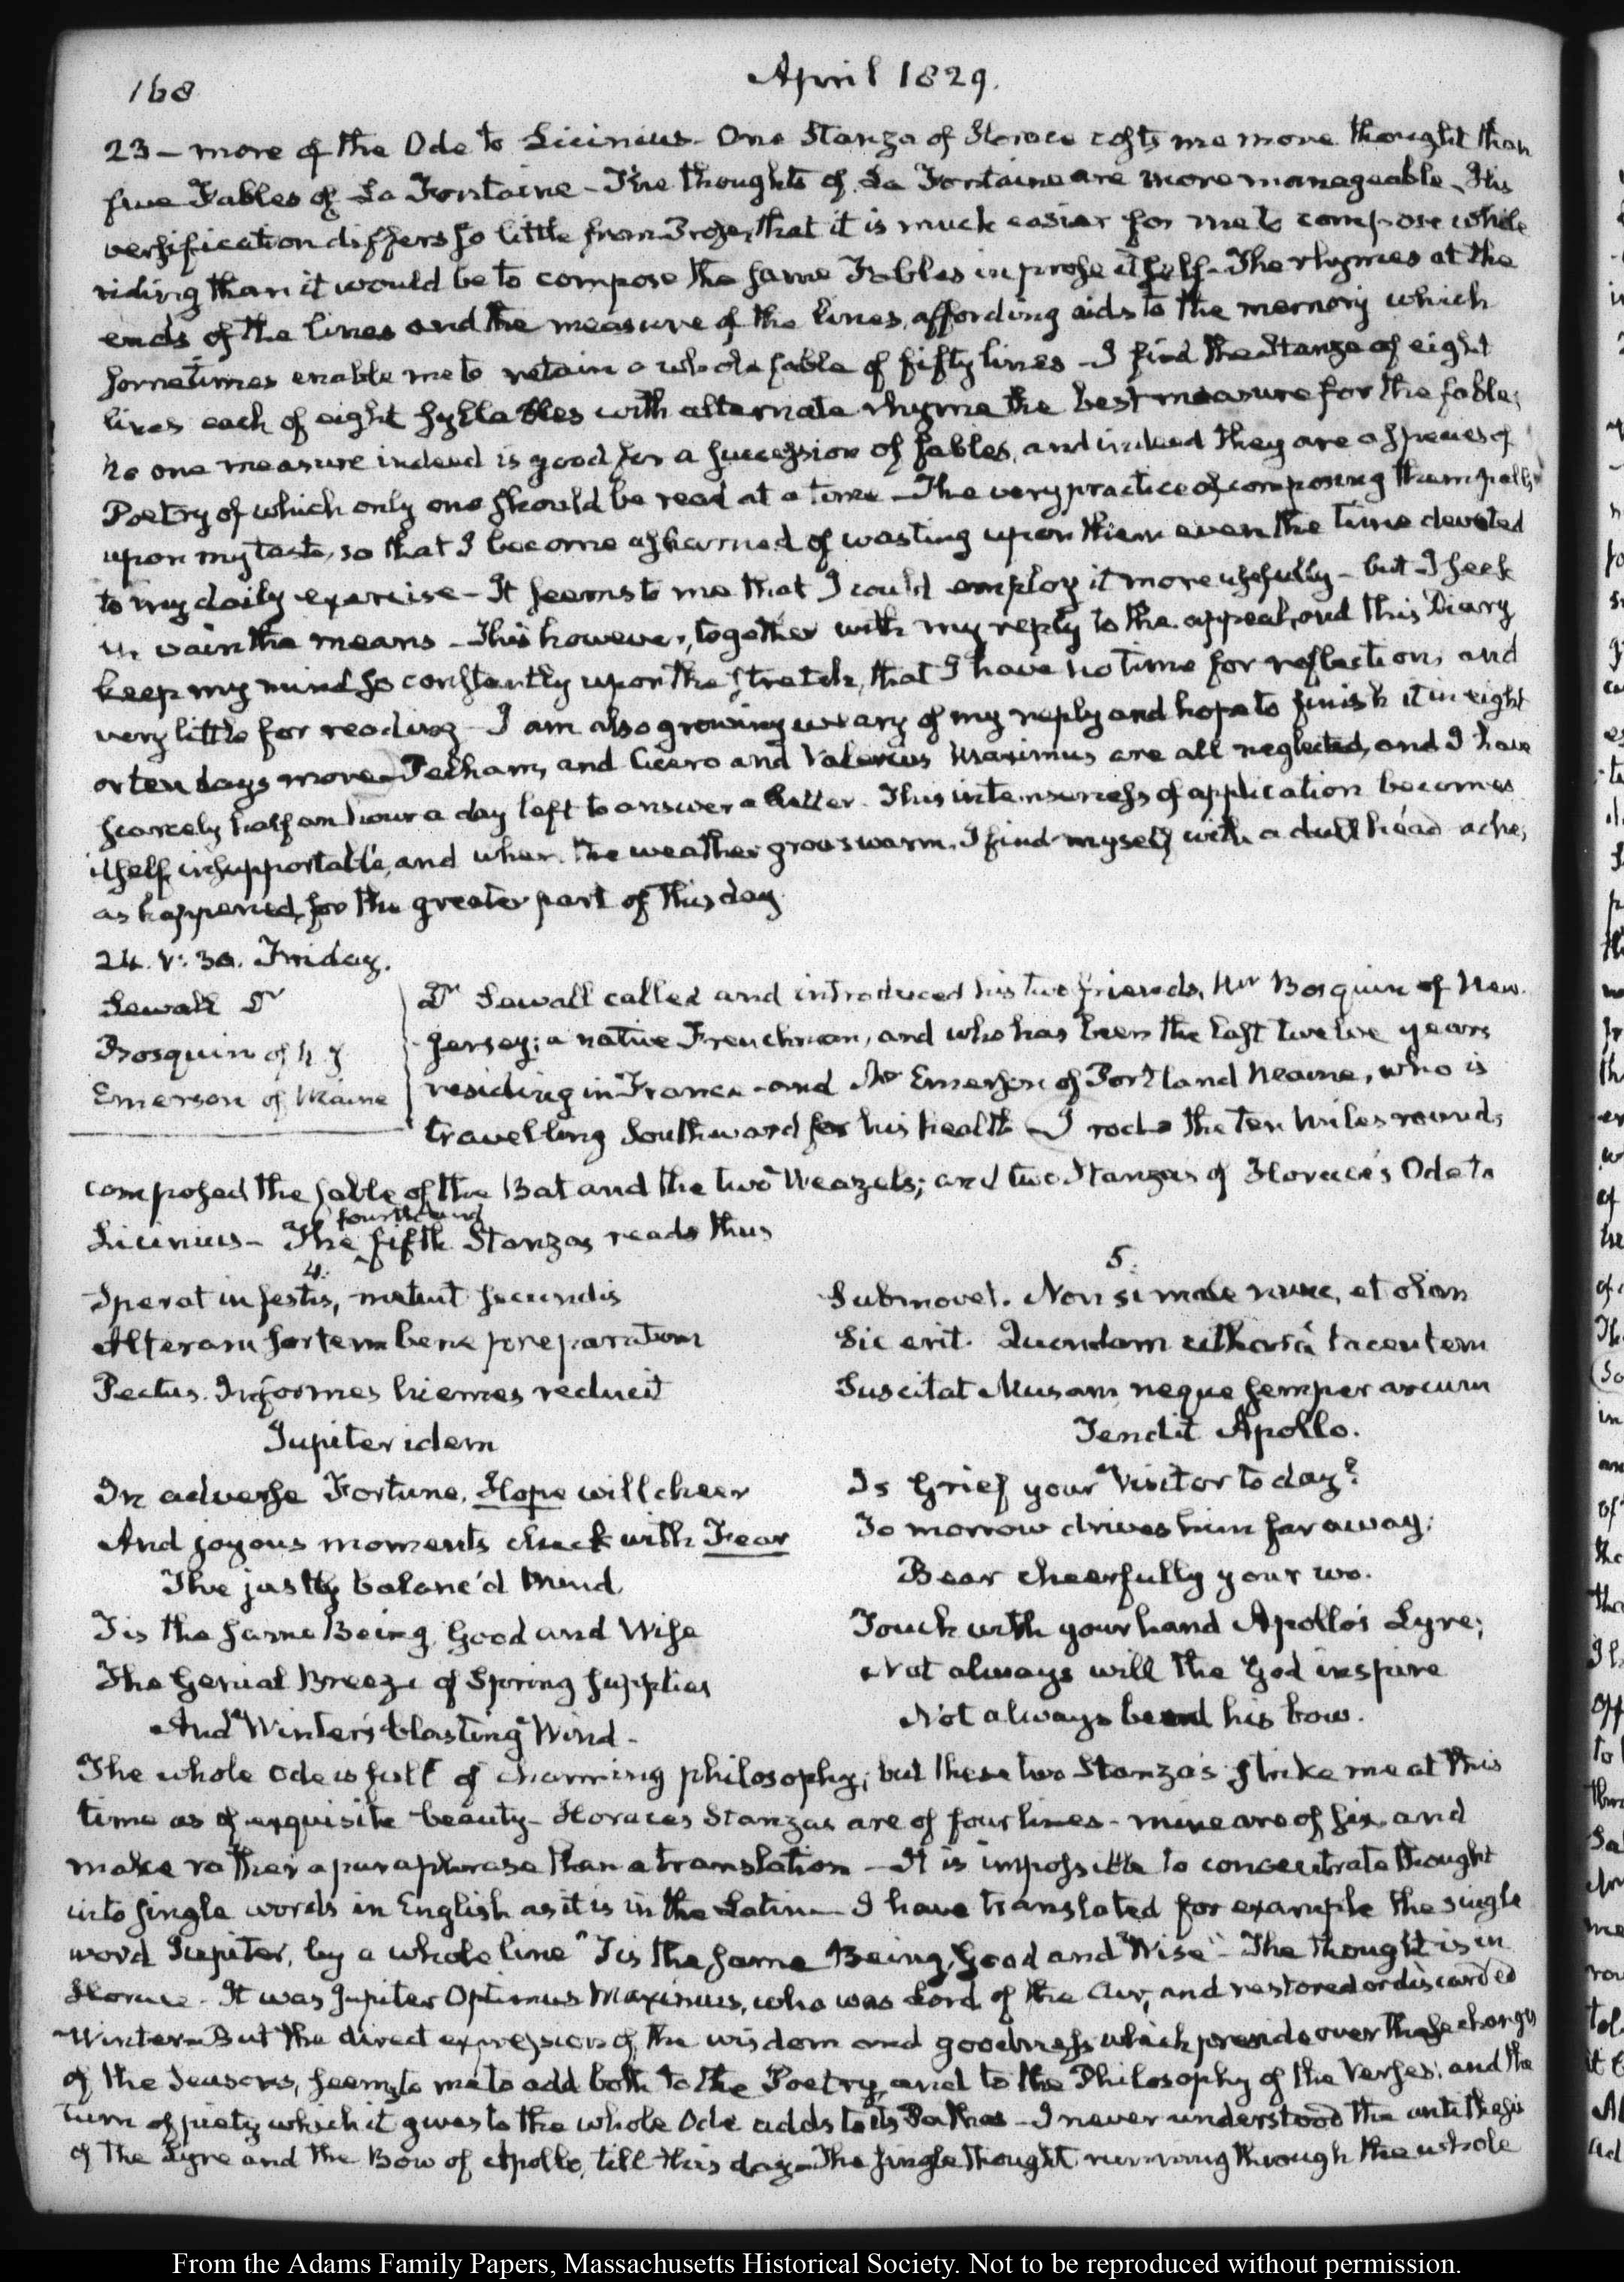 168
April 1829.
23 – more of the Ode to Licinius – One Stanza of Horace costs me more thought than
five Fables of La Fontaine – The thoughts of La Fontaine are more manageable – His
versification differs so little from Prose, that it is much easier for me to compose while
riding than it would be to compose the same Fables in prose itself – The rhymes at the
ends of the lines and the measure of the lines, affording aids to the memory which
sometimes enable me to retain a whole fable of fifty lines – I find the Stanza of eight
lines each of eight syllables with alternate rhyme the best measure for the fable;
no one measure indeed is good for a succession of fables, and indeed they are a species of
Poetry of which only one should be read at a time – The very practice of composing them palls
upon my taste, so that I become ashamed of wasting upon them even the time devoted
to my daily exercise – It seems to me that I could employ it more usefully – but I seek
in vain the means – This however, together with my reply to the appeal, and this Diary
keep my mind so constantly upon the stretch, that I have no time for reflection, and
very little for reading – I am also growing weary of my reply and hope to finish it in eight
or ten days more – Pelham, and Cicero and Valerius Maximus are all neglected, and I have
scarcely half an hour a day left to answer a Letter. This intenseness of application becomes
itself insupportable, and when the weather grows warm, I find myself with a dull head ache,
as happened for the greater part of this day.
24. V: 30. Friday.
Sewall Dr
Bosquin of N. J
Emerson of Maine
Dr Sewall called and introduced his two friends, Mr Bosquin of New-
Jersey; a native Frenchman, and who has been the last twelve years
residing in France – and Mr Emerson of Portland Maine, who is
travelling Southward for his health – I rode the ten miles round,
composed the fable of the Bat and the two Weazels; and two Stanzas of Horace's Ode to
Licinius – The fourth and fifth Stanzas reads thus
4.
Sperat infestis, metuit secundis
Alteram sortem bene preparatum
Pectus. Informes hiemes reducit
Jupiter idem
In adverse Fortune, Hope will cheer
And joyous moments check with Fear
The justly balanc'd Mind
Tis the same Being, Good and Wise
The Genial Breeze of Spring supplies
And Winter's blasting Wind –
5.
Submovet. Non si male nunc, et olim
Sic erit. Quondam citharâ tacentem
Suscitat Musam, neque semper arcum
Tendit Apollo.
Is Grief your Visitor to day?
To morrow drives him far away;
Bear cheerfully your wo.
Touch with your hand Apollo's Lyre;
Not always will the God inspire
Not always bend his bow.
The whole Ode is full of charming philosophy; but these two Stanzas strike me at this
time as of exquisite beauty – Horaces Stanzas are of four lines – mine are of six, and
make rather a paraphrase than a translation – It is impossible to concentrate thought
into single words in English as it is in the Latin – I have translated for example the single
word Jupiter, by a whole line "Tis the same Being, Good and Wise" – The thought is in
Horace – It was Jupiter Optimus Maximus, who was Lord of the Air, and restored or discarded
Winter – But the direct expression of the wisdom and goodness which preside over these changes
of the Seasons, seems to me to add both to the Poetry and to the Philosophy of the Verses; and the
turn of piety which it gives to the whole Ode adds to its Pathos – I never understood the antithesis
of the Lyre and the Bow of Apollo, till this day – The single thought running through the whole
From the Adams Family Papers, Massachusetts Historical Society. Not to be reproduced without permission.